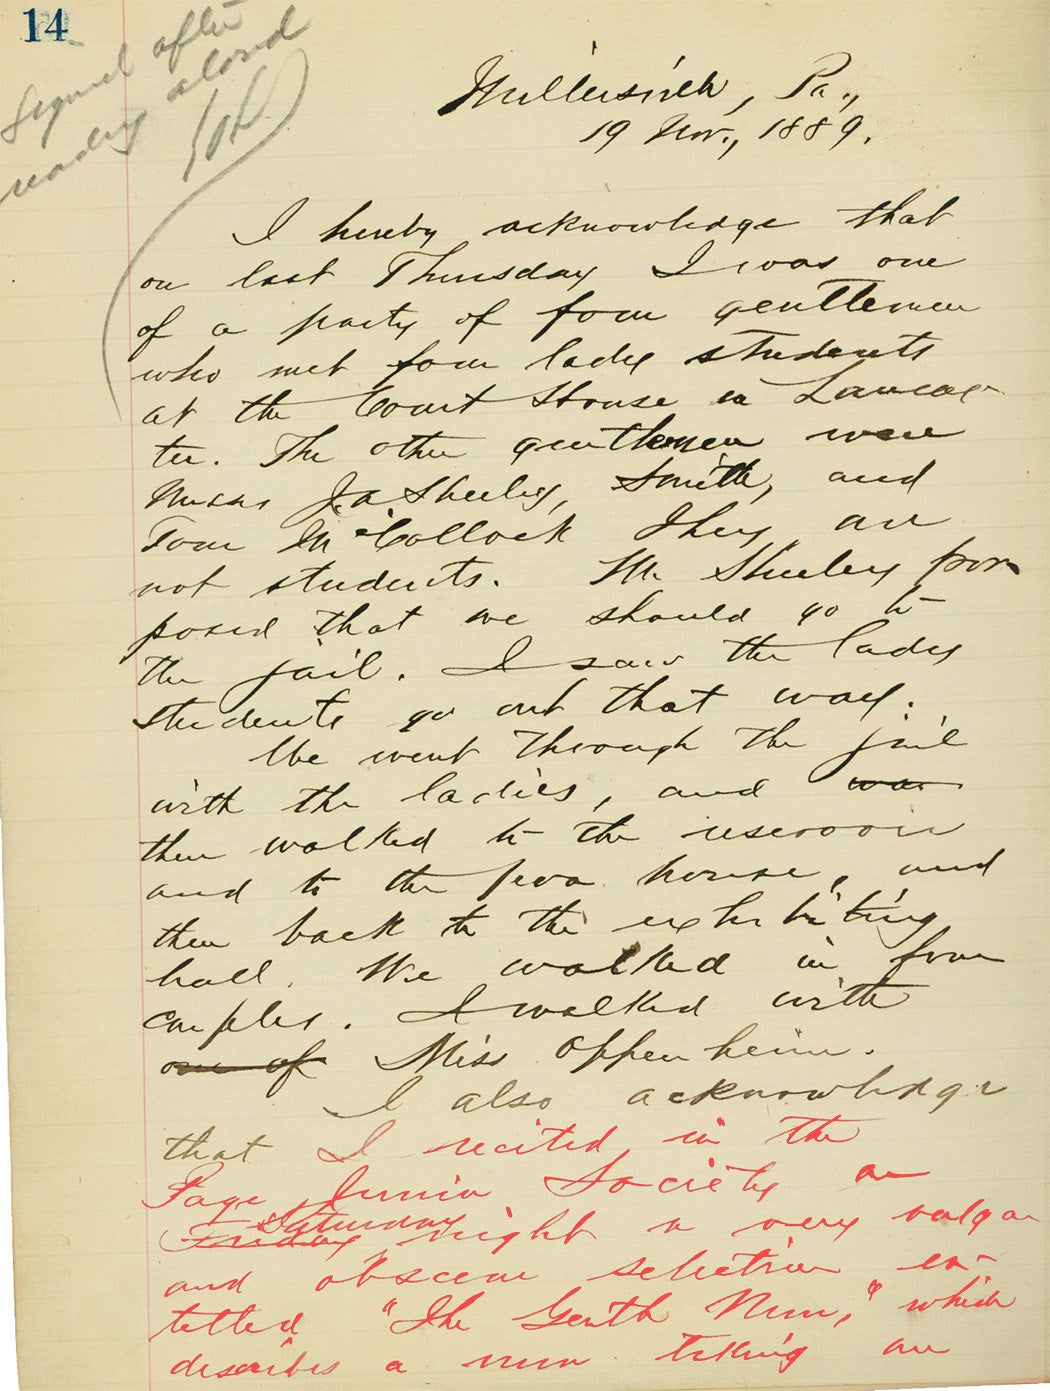 14
Signed after
reading aloud
Millersville, Pa.,
19 Nov., 1889.
I hereby acknowledge that
on last Thursday I was one
of a party of four gentlemen
who met four lady students
at the Court House in Lancas-
ter. The other gentlemen were
Messrs J. A. Sheeley, Smith, and
Tom McCollock They are
not students. Mr. Sheeley pro-
posed that we should go to
the jail. I saw the lady
students go out that way.
We went through the jail
with the ladies, and was
then walked to the reservoir
and to the poor house, and
then back to the exhibiting
hall. We walked in four
couples. I walked with
one of Miss Oppenheim.
I also acknowledge
that I recited in the
Page Junior Society on
Saturday
Friday night a very vulgar
and obscene selection en-
titled "The Gentle Nun," which
describes a nun taking an